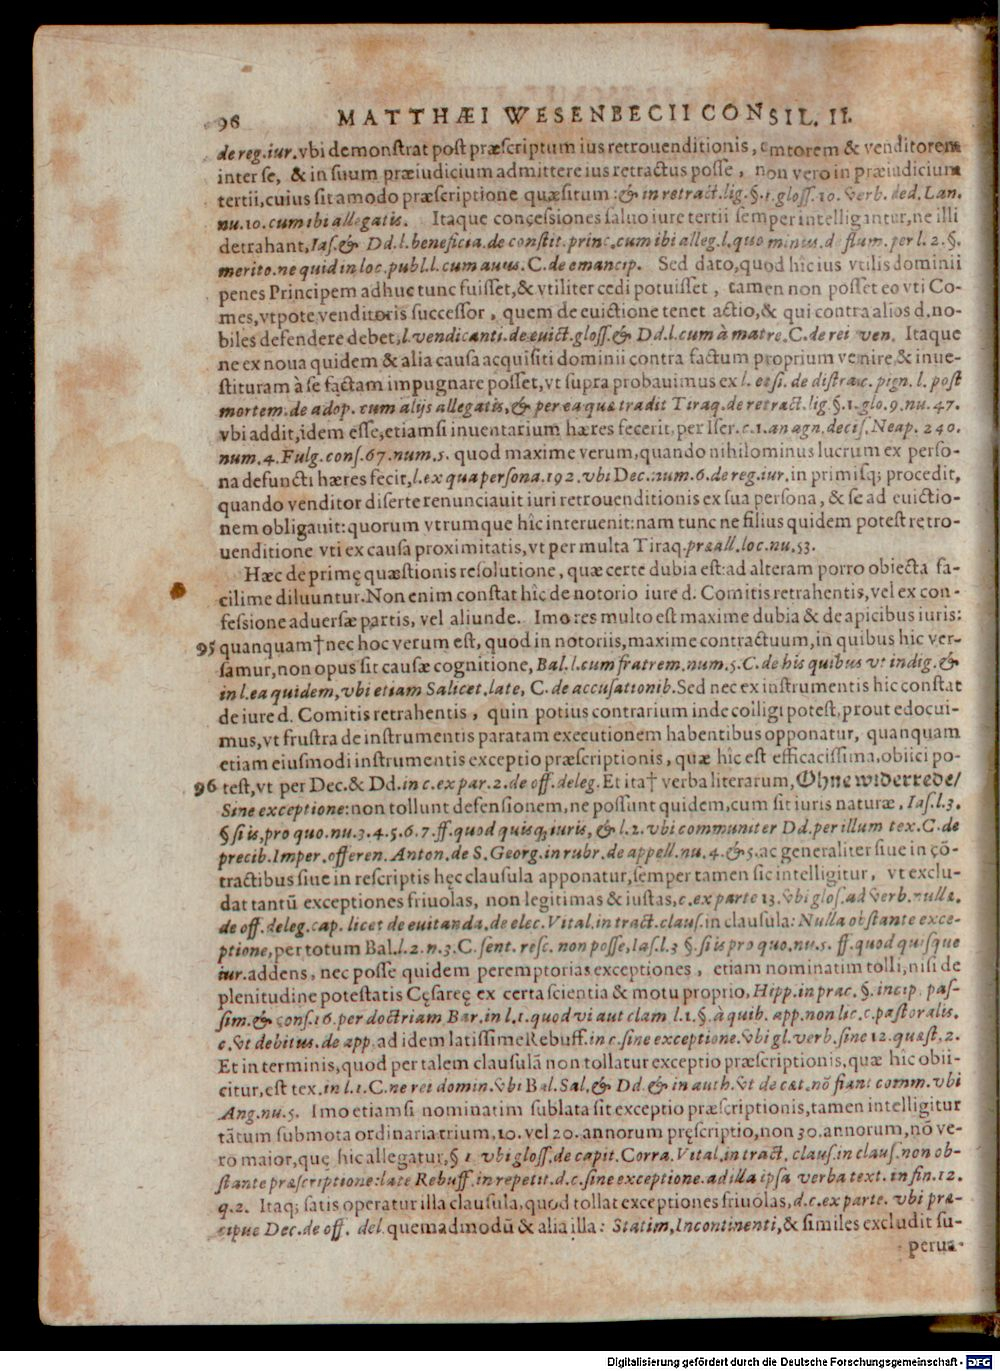 98 MATTHÆI WESENBECII CONSIL. II.
de reg. iur. vbi demonstrat post præscriptum ius retrouenditionis, emtorem & venditorem
inter se, & in suum præiudicium admittere ius retractus posse, non vero in præiudicium
tertii, cuius sit amodo præscriptione quæsitum: & in retract. lig. §. 1. gloss. 10. verb. ded. Lan.
nu. 10. cum ibi allegatis. Itaque concessiones saluo iure tertii semper intelligantur, ne illi
detrahant, Ias. & Dd. l. beneficia. de constit. princ. cum ibi alleg. l. quo minus. de flum. per l. 2. §.
merito. ne quid in loc. publ. l. cum auus. C. de emancip. Sed dato, quod hîc ius vtilis dominii
penes Principem adhuc tunc fuisset, & vtiliter cedi potuisset, tamen non posset eo vti Co-
mes, vtpote venditoris successor, quem de euictione tenet actio, & qui contra alios d. no-
biles defendere debet, l. vendicanti. de euict. gloss. & Dd. l. cum à matre. C. de rei ven. Itaque
ne ex noua quidem & alia causa acquisiti dominii contra factum proprium venire, & inue-
stituram à se factam impugnare posset, vt supra probauimus ex l. etsi. de distrac. pign. l. post
mortem. de adop. cum alijs allegatis, & per ea quæ tradit Tiraq. de retract. lig. §. 1. glo. 9. nu. 47.
vbi addit, idem esse, etiamsi inuentarium hæres fecerit, per Iser. c. 1. an agn. decis. Neap. 240.
num. 4. Fulg. cons. 67. num. 5. quod maxime verum, quando nihilominus lucrum ex perso-
na defuncti hæres fecit, l. ex qua persona. 192. vbi Dec. num. 6. de reg. iur. in primisq; procedit,
quando venditor diserte renunciauit iuri retrouenditionis ex sua persona, & se ad euictio-
nem obligauit: quorum vtrumque hîc interuenit: nam tunc ne filius quidem potest retro-
uenditione vti ex causa proximitatis, vt per multa Tiraq. præall. loc. nu. 53.
Hæc de primę quæstionis resolutione, quæ certe dubia est: ad alteram porro obiecta fa-
cilime diluuntur. Non enim constat hîc de notorio iure d. Comitis retrahentis, vel ex con-
fessione aduersæ partis, vel aliunde. Imo res multo est maxime dubia & de apicibus iuris:
95 quanquam † nec hoc verum est, quod in notoriis, maxime contractuum, in quibus hic ver-
samur, non opus sit causæ cognitione, Bal. l. cum fratrem. num. 5. C. de his quibus vt indig. &
in l. ea quidem, vbi etiam Salicet. late, C. de accusationib. Sed nec ex instrumentis hic constat
de iure d. Comitis retrahentis, quin potius contrarium inde colligi potest, prout edocui-
mus, vt frustra de instrumentis paratam executionem habentibus opponatur, quanquam
etiam eiusmodi instrumentis exceptio præscriptionis, quæ hîc est efficacissima, obiici po-
96 test, vt per Dec. & Dd. in c. ex par. 2. de off. deleg. Et ita † verba literarum, Ohne widerrede/
Sine exceptione: non tollunt defensionem, ne possunt quidem, cum sit iuris naturæ, Ias. l. 3.
§ si is, pro quo. nu. 3. 4. 5. 6. 7. ff. quod quisq; iuris, & l. 2. vbi communiter Dd. per illum tex. C. de
precib. Imper. offeren. Anton. de S. Georg. in rubr. de appell. nu. 4. & 5. ac generaliter siue in cõ-
tractibus siue in rescriptis hęc clausula apponatur, semper tamen sic intelligitur, vt exclu-
dat tantũ exceptiones friuolas, non legitimas & iustas, c. ex parte 13. vbi glos. ad verb. nulla.
de off. deleg. cap. licet de euitanda. de elec. Vital. in tract. claus. in clausula: Nulla obstante exce-
ptione, per totum Bal. l. 2. n. 3. C. sent. resc. non posse, Ias. l. 3 §. si is pro quo. nu. 5. ff. quod quisque
iur. addens, nec posse quidem peremptorias exceptiones, etiam nominatim tolli, nisi de
plenitudine potestatis Cęsareę ex certa scientia & motu proprio, Hipp. in prac. §. incip. pas-
sim. & cons. 16. per doctriam Bar. in l. 1. quod vi aut clam l. 1. §. à quib. app. non lic. c. pastoralis.
c. vt debitus. de app. ad idem latissime Rebuff. in c. sine exceptione. vbi gl. verb. sine 12. quæst. 2.
Et in terminis, quod per talem clausulã non tollatur exceptio præscriptionis, quæ hîc obii-
citur, est tex. in l. 1. C. ne rei domin. vbi Bal. Sal. & Dd. & in auth. vt de cæt. nõ fiant comm. vbi
Ang. nu. 5. Imo etiamsi nominatim sublata sit exceptio præscriptionis, tamen intelligitur
tãtum submota ordinaria trium, 10. vel 20. annorum pręscriptio, non 30. annorum, nõ ve-
ro maior, quę hic allegatur, § 1. vbi gloss. de capit. Corra. Vital. in tract. claus. in claus. non ob-
stante præscriptione: late Rebuff. in repetit. d. c. sine exceptione. ad illa ipsa verba text. in fin. 12.
q. 2. Itaq; satis operatur illa clausula, quod tollat exceptiones friuolas, d. c. ex parte. vbi præ-
cipue Dec. de off. del. quemadmodũ & alia illa: Statim, Incontinenti, & similes excludit su-
perua-
Digitalisierung gefördert durch die Deutsche Forschungsgemeinschaft - DFG